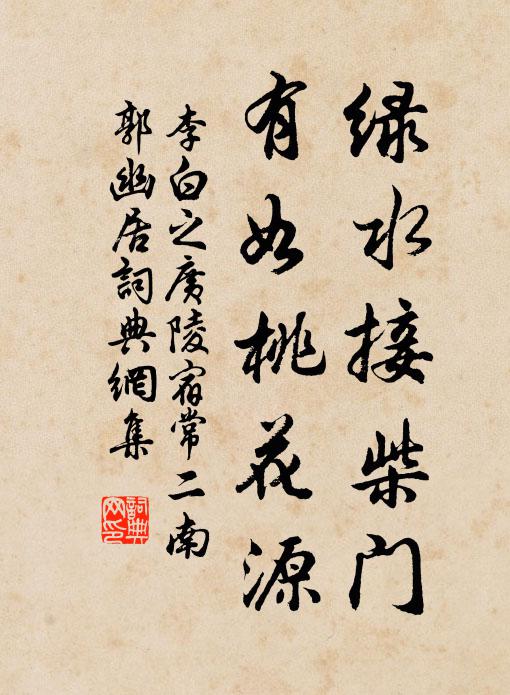 绿水接柴门
有如桃花源
李白之廣陵宿常二南
郭幽居詞典網集
詞典
网印